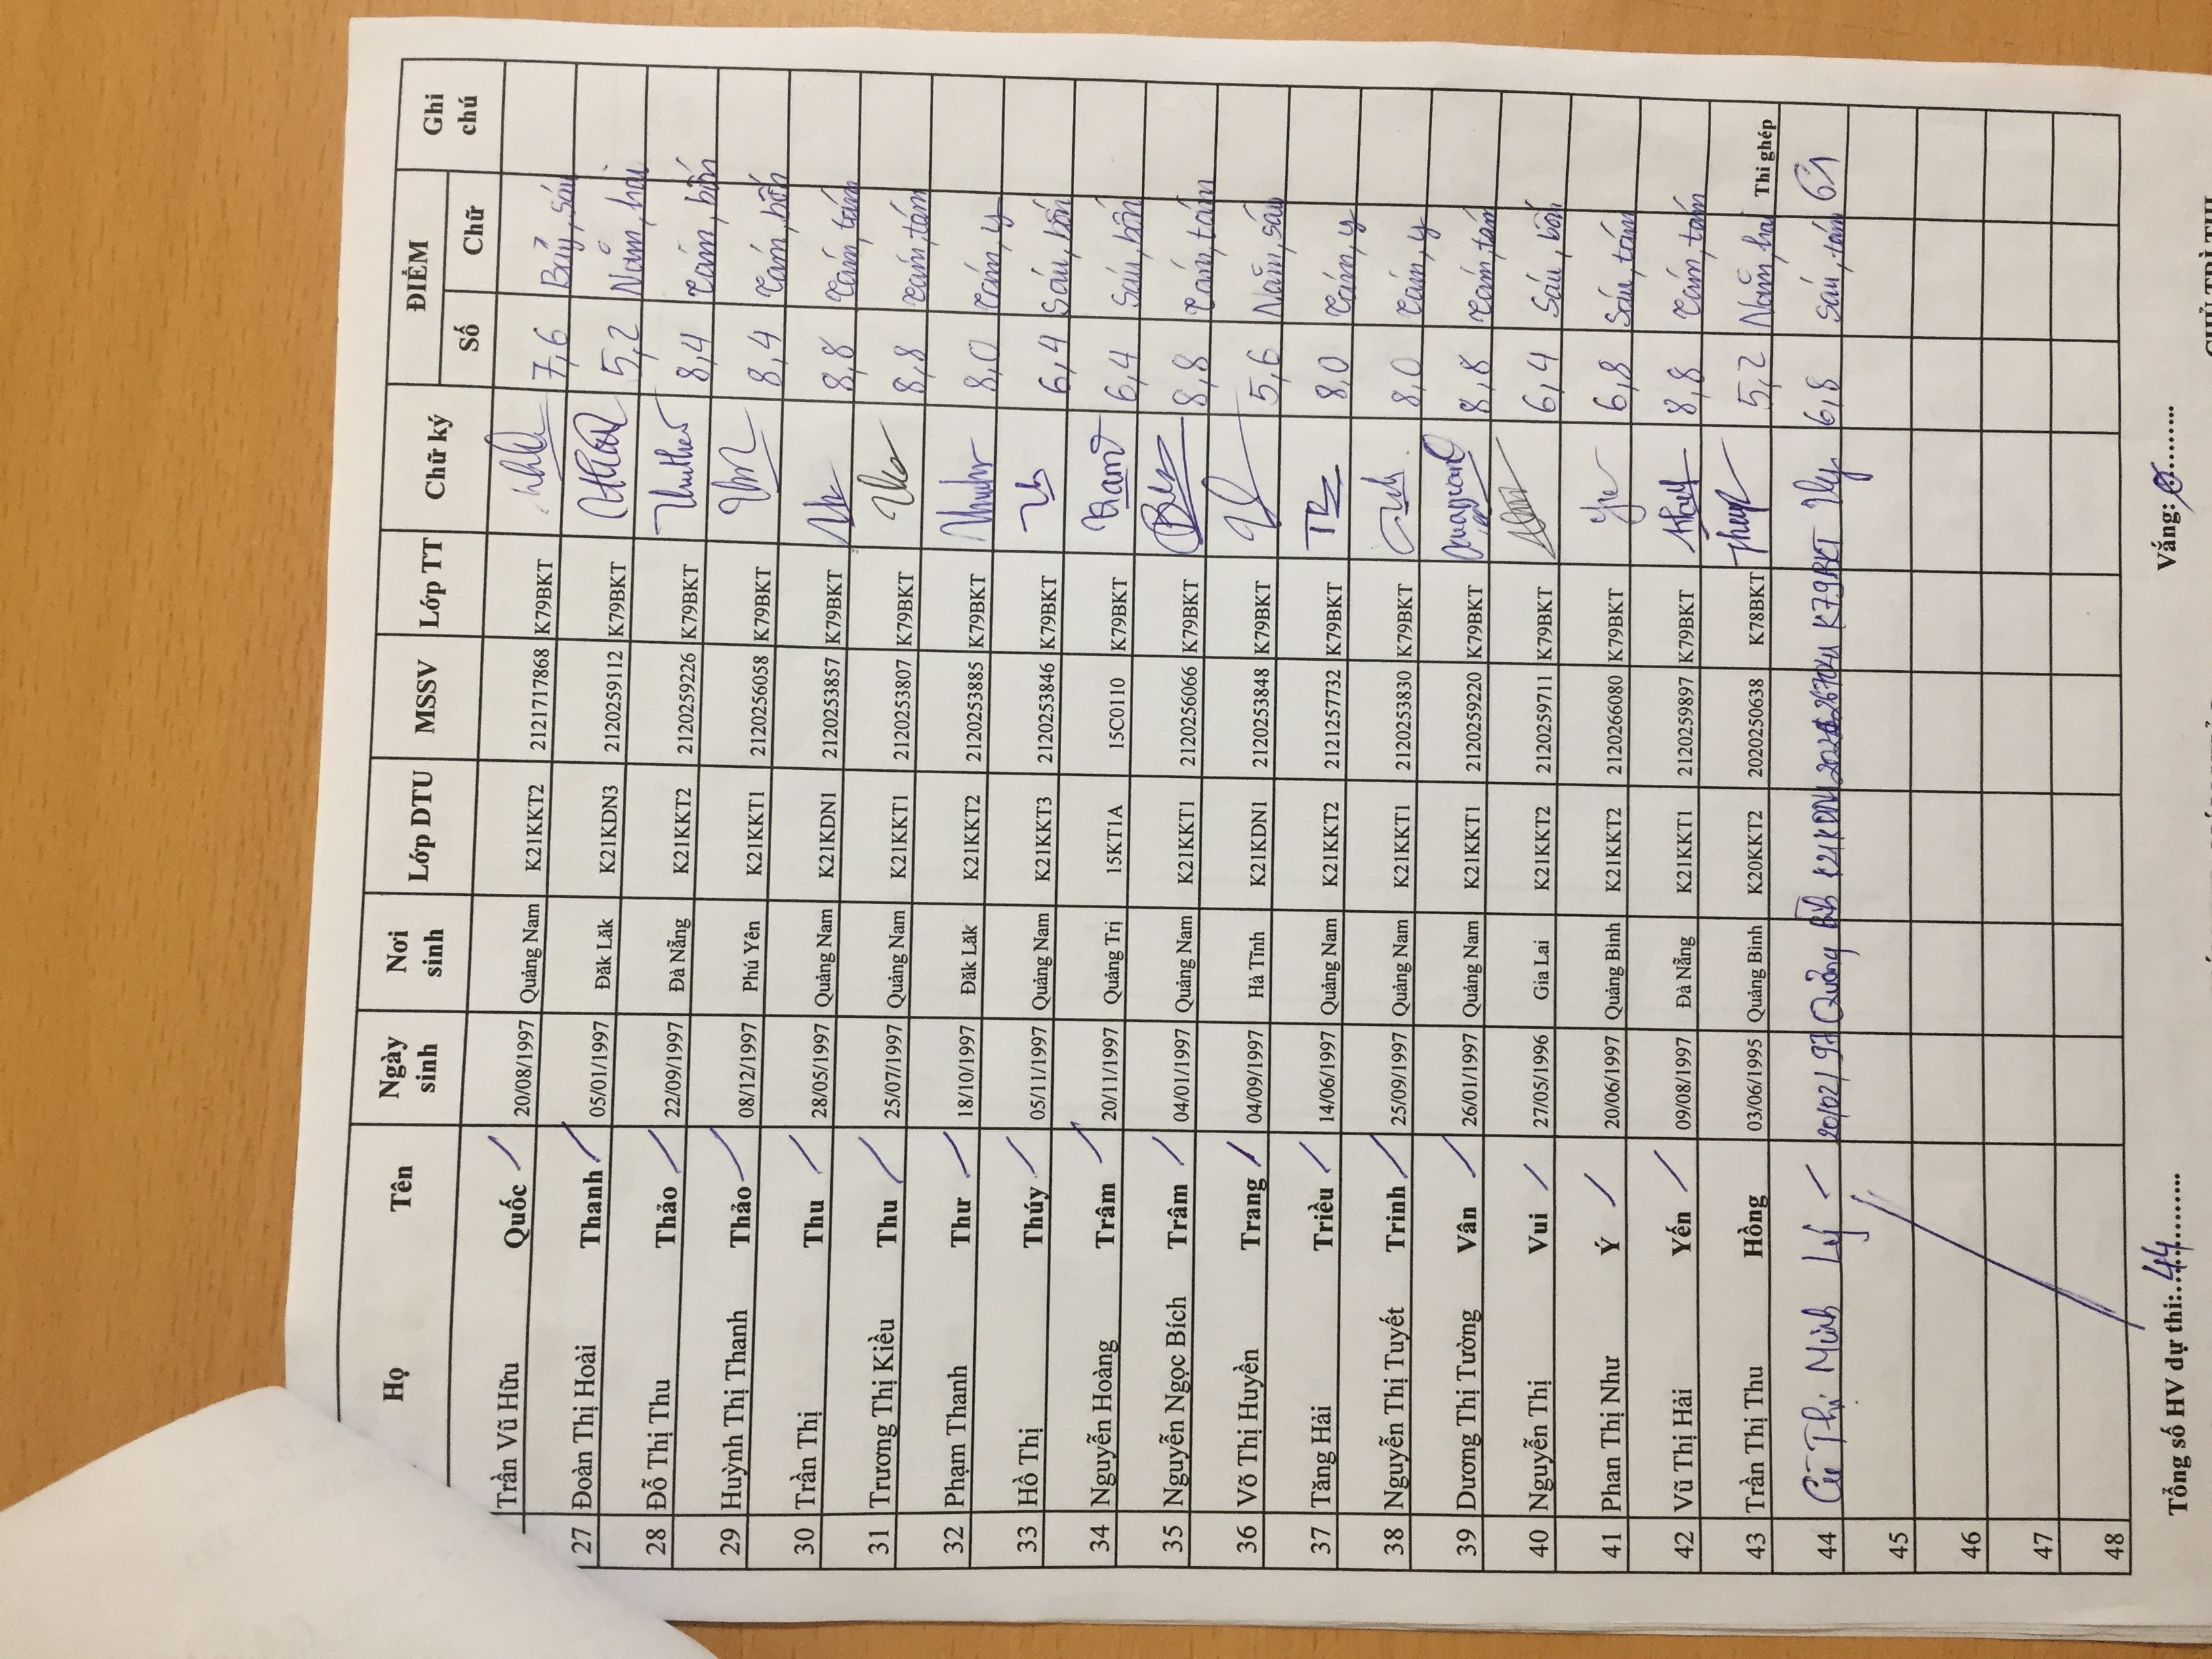 Họ Tên Ngày sinh Nơi sinh Lớp DTU MSSV Lớp TT Chữ ký ĐIỂM Ghi chú
Số Chữ
Trần Vũ Hữu Quốc 20/08/1997 Quảng Nam K21KKT2 2121717868 K79BKT 7,6 Bảy, sáu
27 Đoàn Thị Hoài Thanh 05/01/1997 Đăk Lăk K21KDN3 2120259112 K79BKT 5,2 Năm, hai
28 Đỗ Thị Thu Thảo 22/09/1997 Đà Nẵng K21KKT2 2120259226 K79BKT 8,4 Tám, bốn
29 Huỳnh Thị Thanh Thảo 08/12/1997 Phú Yên K21KKT1 2120256058 K79BKT 8,4 Tám, bốn
30 Trần Thị Thu 28/05/1997 Quảng Nam K21KDN1 2120253857 K79BKT 8,8 Tám, tám
31 Trương Thị Kiều Thu 25/07/1997 Quảng Nam K21KKT1 2120253807 K79BKT 8,8 Tám, tám
32 Phạm Thanh Thư 18/10/1997 Đăk Lăk K21KKT2 2120253885 K79BKT 8,0 Tám, y
33 Hồ Thị Thúy 05/11/1997 Quảng Nam K21KKT3 2120253846 K79BKT 6,4 Sáu, bốn
34 Nguyễn Hoàng Trâm 20/11/1997 Quảng Trị 15KT1A 15C0110 K79BKT 6,4 Sáu, bốn
35 Nguyễn Ngọc Bích Trâm 04/01/1997 Quảng Nam K21KKT1 2120256066 K79BKT 8,8 Tám, tám
36 Võ Thị Huyền Trang 04/09/1997 Hà Tĩnh K21KDN1 2120253848 K79BKT 5,6 Năm, sáu
37 Tăng Hải Triều 14/06/1997 Quảng Nam K21KKT2 2121257732 K79BKT 8,0 Tám, y
38 Nguyễn Thị Tuyết Trinh 25/09/1997 Quảng Nam K21KKT1 2120253830 K79BKT 8,0 Tám, y
39 Dương Thị Tường Vân 26/01/1997 Quảng Nam K21KKT1 2120259220 K79BKT 8,8 Tám, tám
40 Nguyễn Thị Vui 27/05/1996 Gia Lai K21KKT2 2120259711 K79BKT 6,4 Sáu, bốn
41 Phan Thị Như Ý 20/06/1997 Quảng Bình K21KKT2 2120266080 K79BKT 6,8 Sáu, tám
42 Vũ Thị Hải Yến 09/08/1997 Đà Nẵng K21KKT1 2120259897 K79BKT 8,8 Tám, tám
43 Trần Thị Thu Hồng 03/06/1995 Quảng Bình K20KKT2 2020250638 K78BKT 5,2 Năm, hai Thi ghép
44 Thị Minh Lý 20/02/97 Quảng K79BKT 6,8 Sáu, tám
45
46
47
48
Tổng số HV dự thi: 44 Vắng: